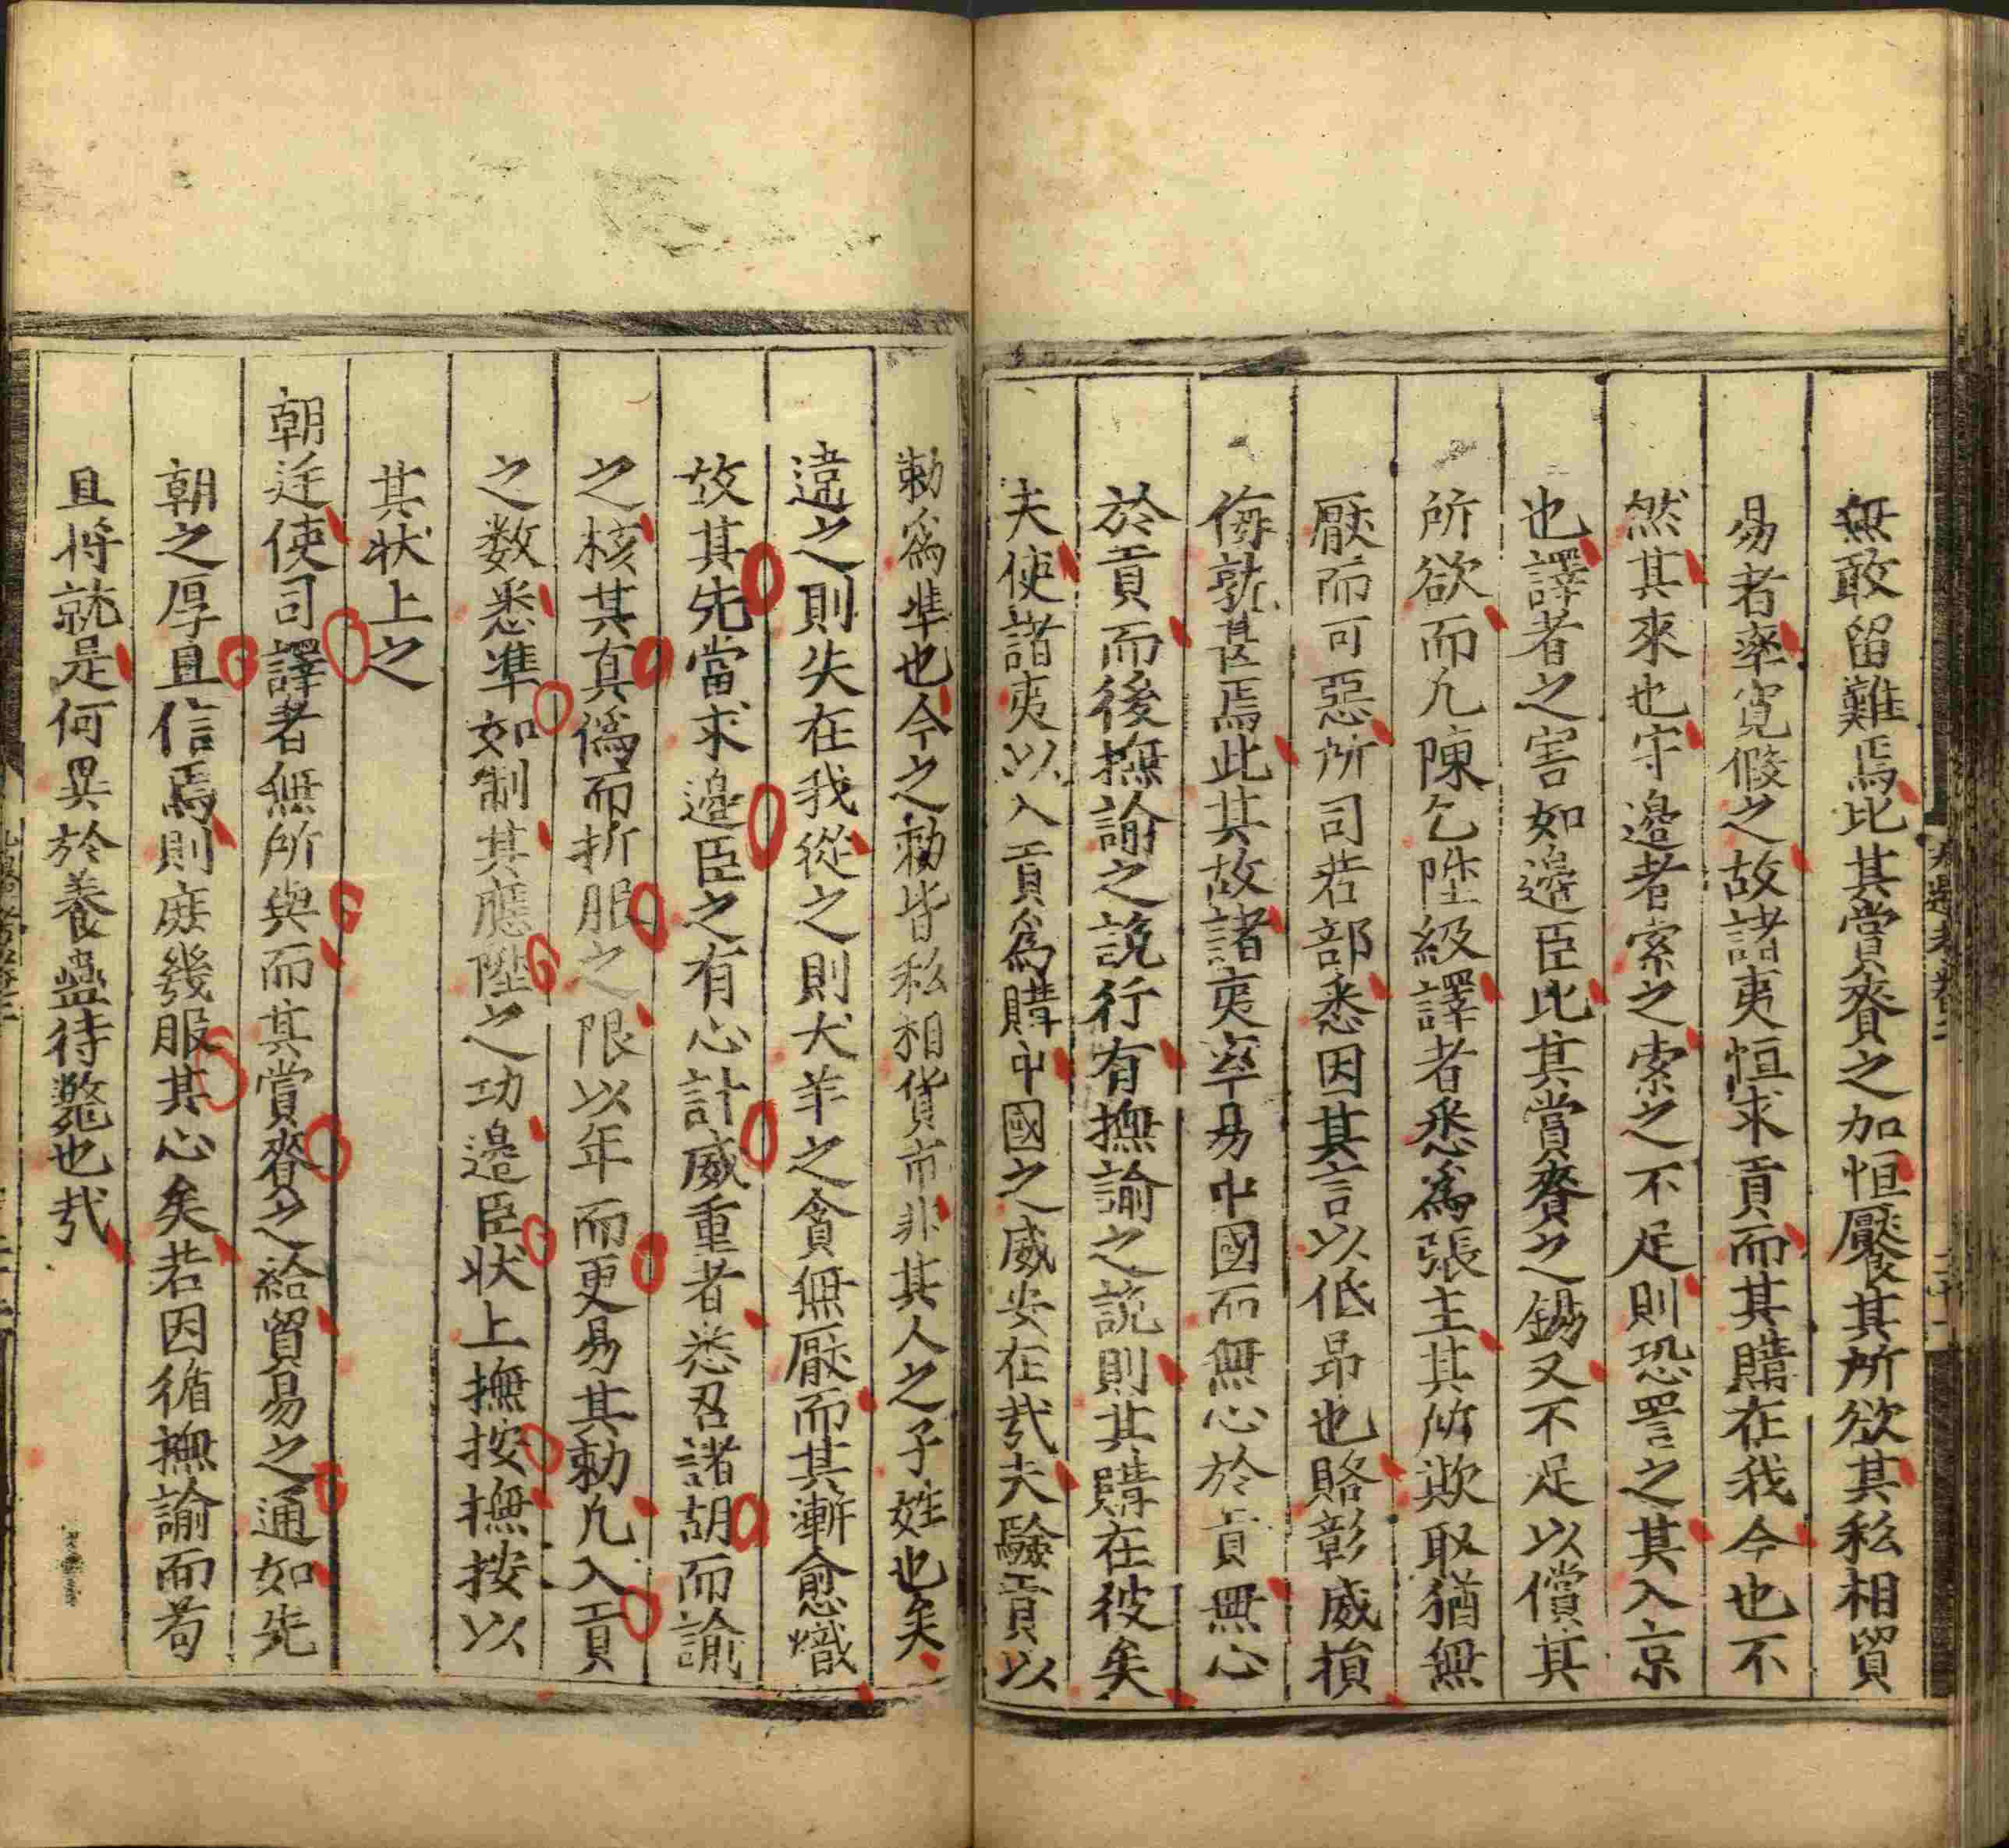 無敢留難焉比其賞賚之加恒饜其所欲其私相貿
易者率寛假之故諸夷恒求貢而其購在我今也不
然其來也守邊者索之索之不足則恐詈之其入京
也譯者之害如邊臣比其賞賚之錫又不足以償其
所欲而凢陳乞陞級譯者悉爲張主其所欺取猶無
厭而可惡所司若部悉因其言以低昻也賂彰威損
侮孰甚焉此其故諸夷率易中國而無心於貢無心
於貢而後撫諭之説行有撫諭之説則其購在彼矣
夫使諸夷以入貢爲購中國之威安在㢤夫驗貢以
勅爲準也今之勅皆私相貨市非其人之子姓也矣
違之則失在我從之則犬羊之貪無厭而其漸愈熾
故其先當求邊臣之有心計威重者悉召諸胡而諭
之核其真僞而折服之限以年而更易其勅凢入貢
之数悉準如制其應陞之功邊臣状上撫按撫按以
其状上之
朝廷使司譯者無所與而其賞賚之給貿易之通如先
朝之厚且信焉則庻幾服其心矣若因循撫諭而苟
且将就是何異於養蠱待斃也㢤
九邊考卷二
二十一